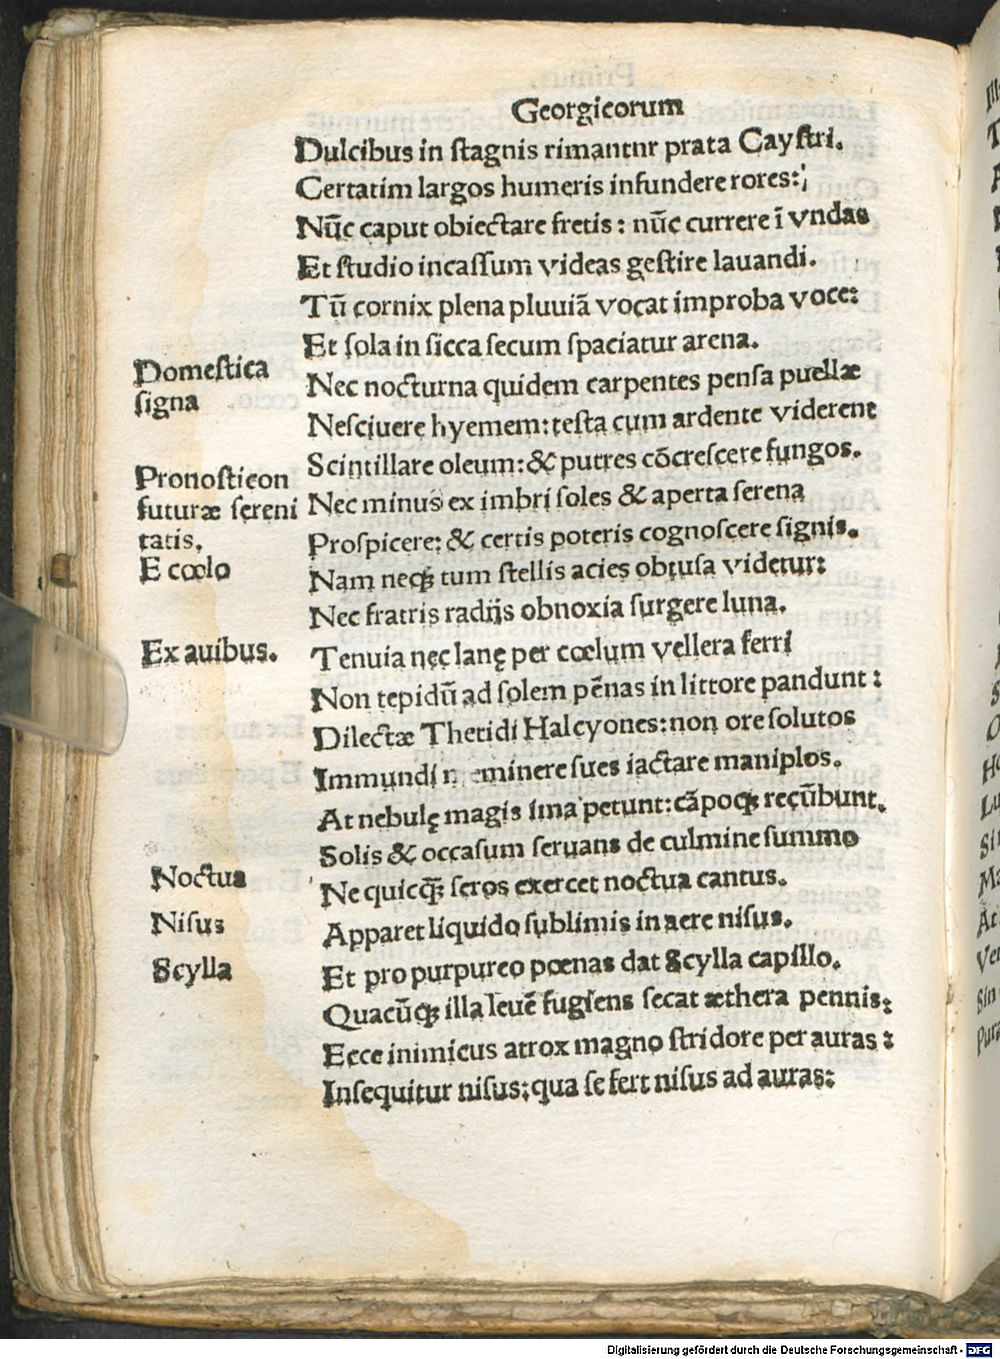 Georgicorum
Dulcibus in stagnis rimantnr prata Caystri.
Certatim largos humeris infundere rores:
Nūc caput obiectare fretis: nūc currere ī vndas
Et studio incassum videas gestire lauandi.
Tū cornix plena pluuiā vocat improba voce:
Et sola in sicca secum spaciatur arena.
Domestica
signa
Nec nocturna quidem carpentes pensa puellæ
Nesciuere hyemem: testa cum ardente viderent
Scintillare oleum: & putres cōcrescere fungos.
Pronosticon
futuræ sereni
tatis.
Nec minus ex imbri soles & aperta serena
Prospicere: & certis poteris cognoscere signis.
E cœlo
Nam neqȝ tum stellis acies obtusa videtur:
Nec fratris radijs obnoxia surgere luna.
Ex auibus.
Tenuia nec lanę per cœlum vellera ferri
Non tepidū ad solem pēnas in littore pandunt:
Dilectæ Thetidi Halcyones: non ore solutos
Immundi meminere sues iactare maniplos.
At nebulę magis ima petunt: cāpoqȝ recūbunt.
Solis & occasum seruans de culmine summo
Noctua
Ne quicqȝ̄ seros exercet noctua cantus.
Nisus
Apparet liquido sublimis in aere nisus.
Scylla
Et pro purpureo pœnas dat Scylla capillo.
Quacūqȝ illa leuē fugiens secat æthera pennis:
Ecce inimicus atrox magno stridore per auras:
Insequitur nisus: qua se fert nisus ad auras:
Digitalisierung gefördert durch die Deutsche Forschungsgemeinschaft - DFG